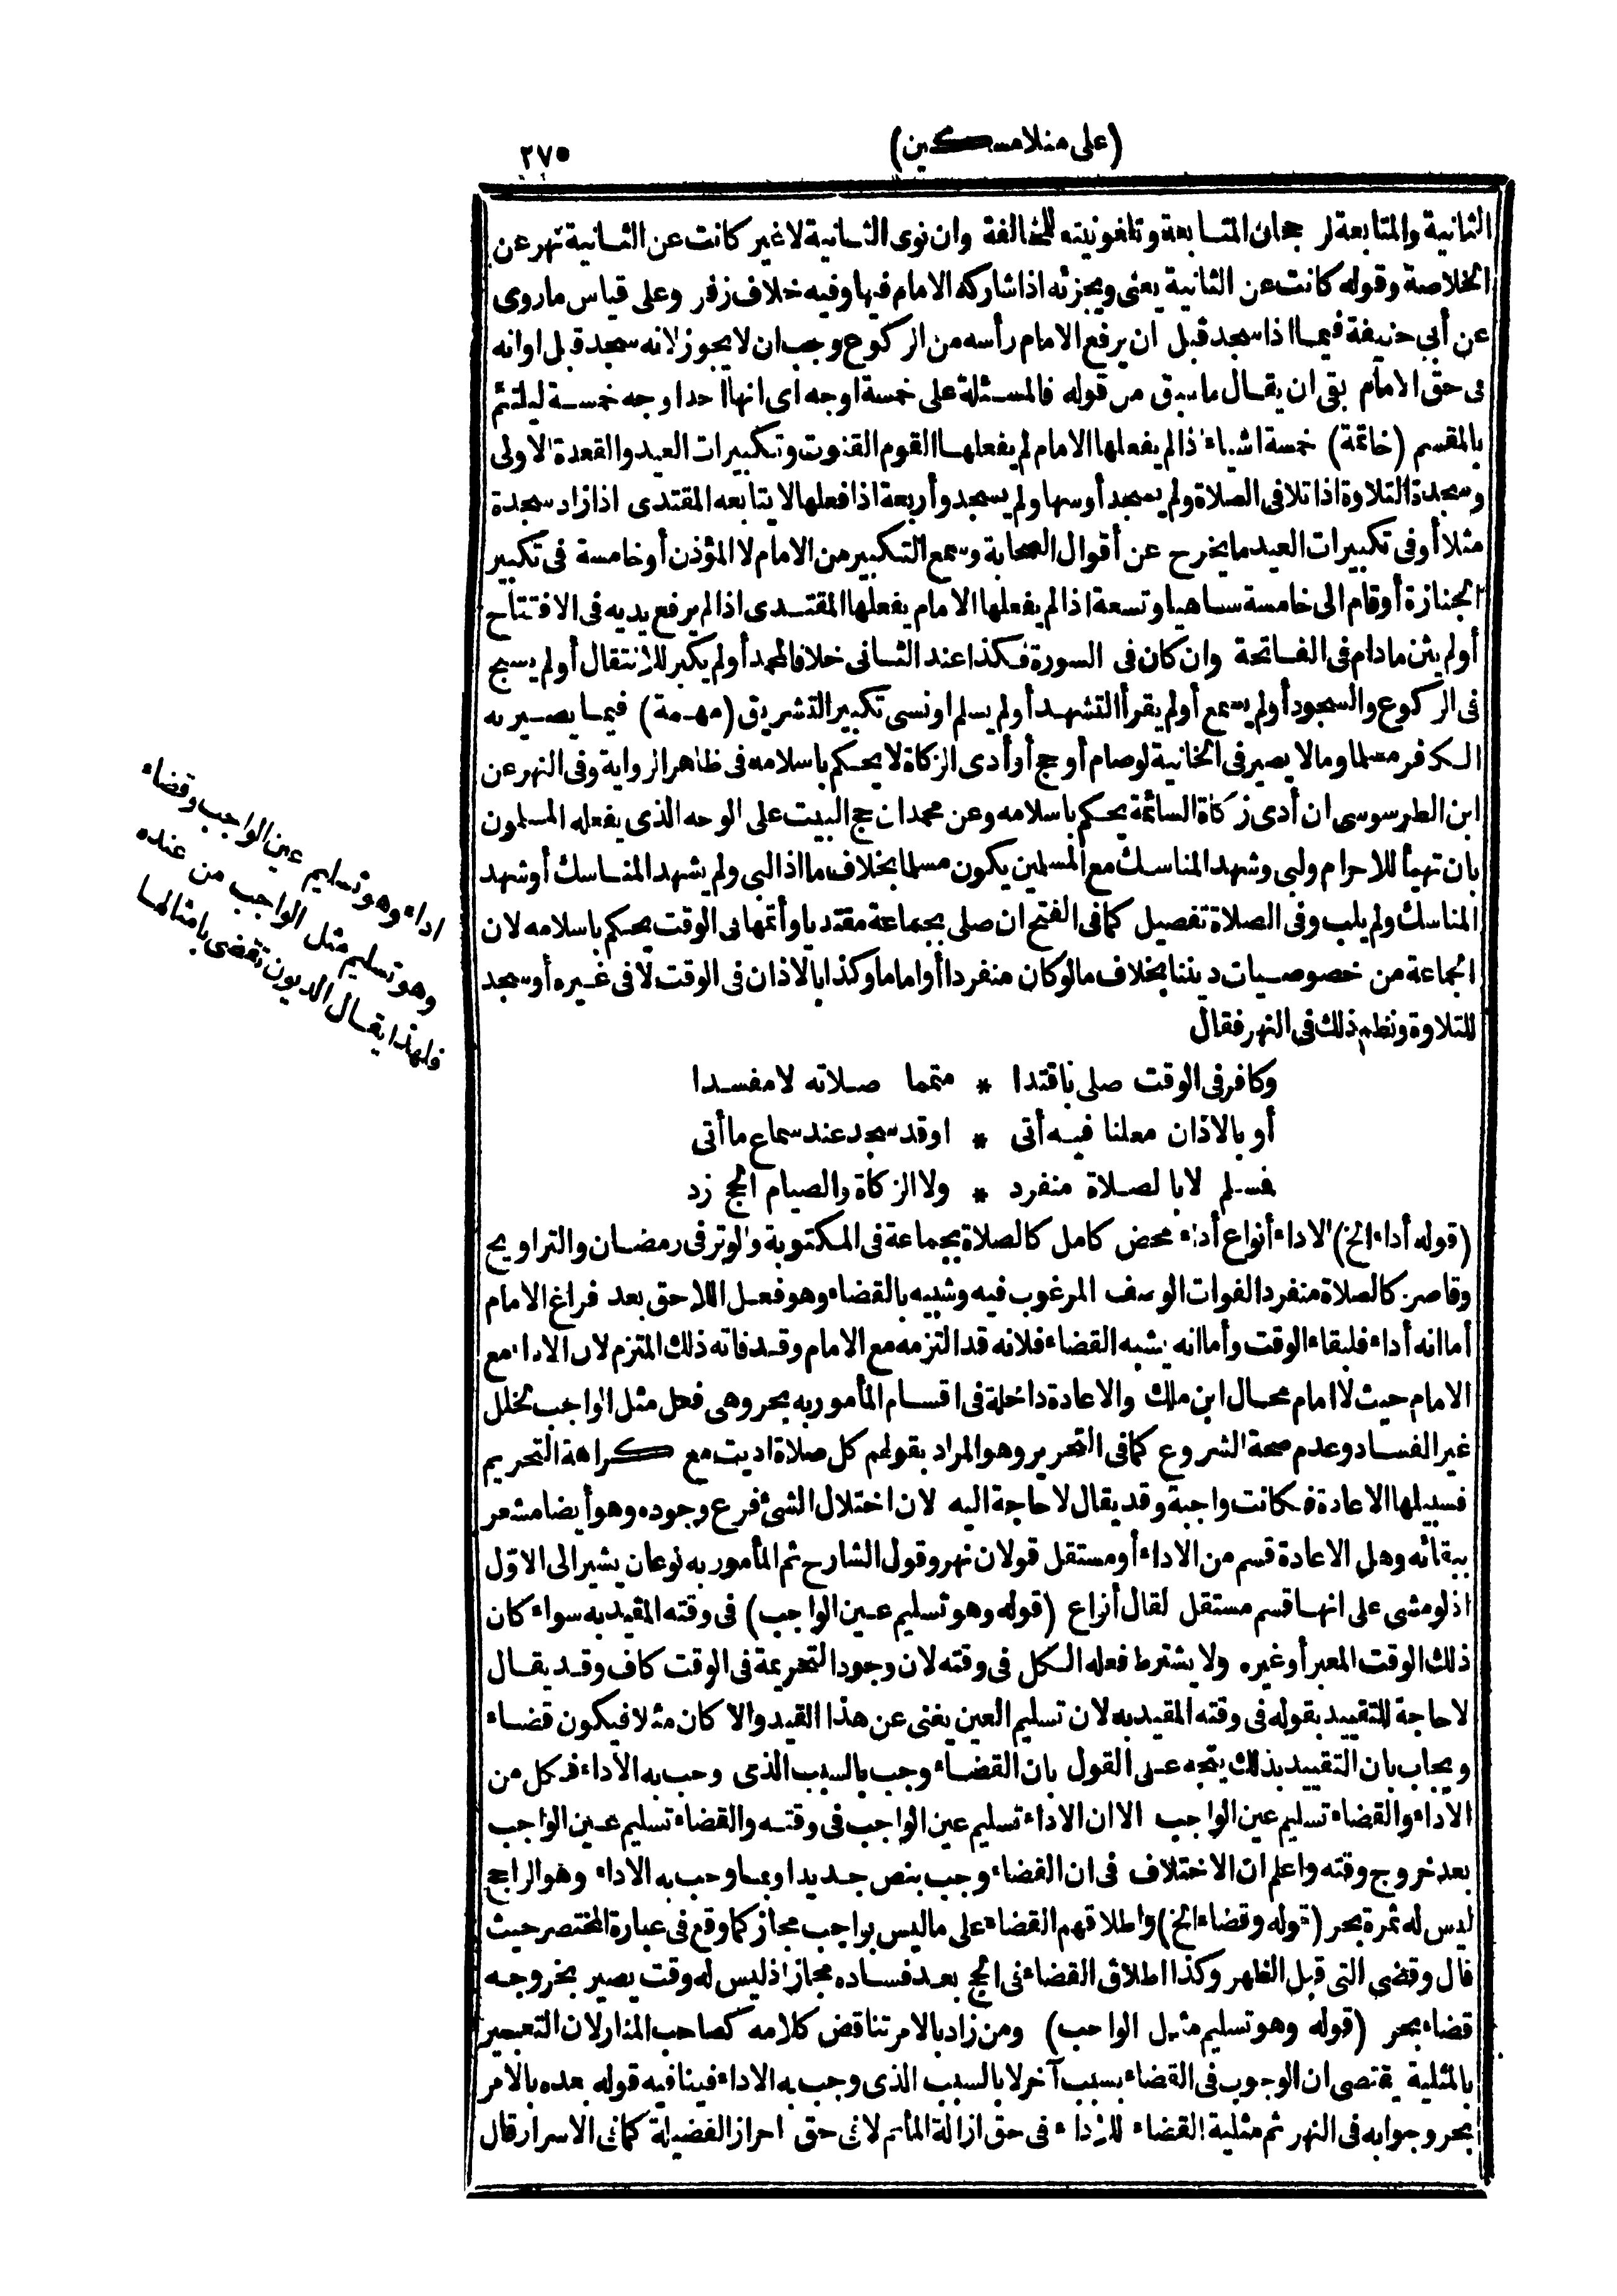 (على منلا مسكين)
٢٧٥
الثانية والمتابعة لرجحان المتابعة وتلغو نيته للمخالفة وان نوى الثانية لا غير كانت عن الثانية نهر عن
الخلاصة وقوله كانت عن الثانية يعنى ويجزئه اذا شاركه الامام فيها وفيه خلاف زفر وعلى قياس ماروى
عن أبي حنيفة فيما اذا سجد قبل ان يرفع الامام رأسه من الركوع وجب ان لا يجوز لانه سجد قبل اوانه
فى حق الامام بقى ان يقال ما سبق من قوله فالمسئلة على خمسة اوجه اى انها احد اوجه خمسة ليلتئم
بالمقسم (خاتمة) خمسة اشياء اذا لم يفعلها الامام لم يفعلها القوم القنوت وتكبيرات العيد والقعدة الاولى
وسجدة التلاوة اذا تلا فى الصلاة ولم يسجد أوسها ولم يسجد وأربعة اذا فعلها لا يتابعه المقتدى اذا زاد سجدة
مثلا أو فى تكبيرات العيد ما يخرج عن أقوال الصحابة وسمع التكبير من الامام لا المؤذن أو خامسة فى تكبير
الجنازة أو قام الى خامسة ساهيا وتسعة اذا لم يفعلها الامام يفعلها المقتدى اذا لم يرفع يديه فى الافتتاح
أو لم يثن مادام فى الفاتحة وان كان فى السورة فكذا عند الثانى خلافا لمحمد أو لم يكبر للانتقال أو لم يسبح
فى الركوع والسجود أو لم يسمع أو لم يقرأ التشهد أو لم يسلم اونسى تكبير التشريق (مهمة) فيما يصير به
الكافر مسلما وما لا يصير فى الخانية لو صام أو حج أو أدى الزكاة لا يحكم باسلامه فى ظاهر الرواية وفى النهر عن
ابن الطرسوسى ان أدى زكاة السائمة يحكم باسلامه وعن محمد ان حج البيت على الوجه الذى يفعله المسلمون
بان تهيأ للاحرام ولبى وشهد المناسك مع المسلمين يكون مسلما بخلاف ما اذا لبى ولم يشهد المناسك أوشهد
المناسك ولم يلب وفى الصلاة تفصيل كما فى الفتح ان صلى بجماعة مقتديا وأتمها فى الوقت يحكم باسلامه لان
الجماعة من خصوصيات ديننا بخلاف مالو كان منفردا أو اماما وكذا بالاذان فى الوقت لا فى غيره أوسجد
للتلاوة ونظم ذلك فى النهر فقال
وكافر فى الوقت صلى باقتدا * متمما صلاته لا مفسدا
أو بالاذان معلنا فيه أتى * اوقد سجد عند سماع ما أتى
فمسلم لا بالصلاة منفرد * ولا الزكاة والصيام الحج زد
(قوله أداء الخ) الاداء أنواع أداء محض كامل كالصلاة بجماعة فى المكتوبة والوتر فى رمضان والتراويح
وقاصر كالصلاة منفردا لفوات الوصف المرغوب فيه وشبيه بالقضاء وهو فعل اللاحق بعد فراغ الامام
أما انه أداء فلبقاء الوقت وأما انه يشبه القضاء فلانه قد التزمه مع الامام وقد فاته ذلك الملتزم لان الاداء مع
الامام حيث لا امام محال ابن ملك والاعادة داخلة فى اقسام المأمور به بحر وهى فعل مثل الواجب لخلل
غير الفساد وعدم صحة الشروع كما فى التحرير وهو المراد بقولهم كل صلاة اديت مع كراهة التحريم
فسبيلها الاعادة فكانت واجبة وقد يقال لا حاجة اليه لان اختلال الشئ فرع وجوده وهو أيضا مشعر
ببقائه وهل الاعادة قسم من الاداء أو مستقل قولان نهر وقول الشارح ثم المأمور به نوعان يشير الى الاوّل
اذ لو مشى على انها قسم مستقل لقال أنواع (قوله وهو تسليم عين الواجب) فى وقته المقيد به سواء كان
ذلك الوقت العمر أو غيره ولا يشترط فعله الكل فى وقته لان وجود التحريمة فى الوقت كاف وقد يقال
لا حاجة للتقييد بقوله فى وقته المقيد به لان تسليم العين يغنى عن هذا القيد والا كان مثلا فيكون قضاء
ويجاب بان التقييد بذلك يتجه على القول بان القضاء وجب بالسبب الذى وجب به الاداء فكل من
الاداء والقضاء تسليم عين الواجب الا ان الاداء تسليم عين الواجب فى وقته والقضاء تسليم عين الواجب
بعد خروج وقته واعلم ان الاختلاف فى ان القضاء وجب بنص جديد او بما وجب به الاداء وهو الراجح
ليس له ثمرة بحر (قوله وقضاء الخ) واطلاقهم القضاء على ما ليس بواجب مجاز كما وقع فى عبارة المختصر حيث
قال وقضى التى قبل الظهر وكذا اطلاق القضاء فى الحج بعد فساده مجاز اذ ليس له وقت يصير بخروجه
قضاء بحر (قوله وهو تسليم مثل الواجب) ومن زاد بالامر تناقض كلامه كصاحب المنار لان التعبير
بالمثلية يقتضى ان الوجوب فى القضاء بسبب آخر لا بالسبب الذى وجب به الاداء فينافيه قوله بعده بالامر
بحر وجوابه فى النهر ثم مثلية القضاء للاداء فى حق ازالة المأثم لا فى حق احراز الفضيلة كما فى الاسرار قال
اداء وهو تسليم عين الواجب وقضاء
وهو تسليم مثل الواجب من عنده
فلهذا يقال الديون تقضى بامثالها